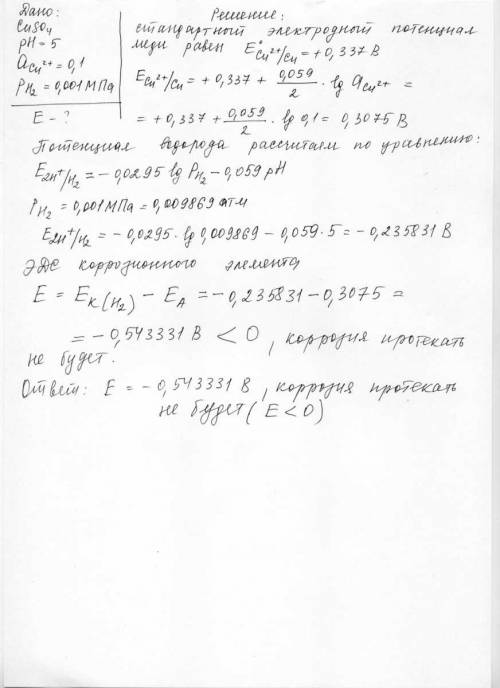 Дано:
CuSO4
pH = 5
aCu²⁺ = 0,1
PH2 = 0,001 МПа
E - ?
Решение:
стандартный электродный потенциал
меди равен E°Cu²⁺/Cu = +0,337 В
ECu²⁺/Cu = +0,337 + 0,059/2 · lg aCu²⁺ =
= +0,337 + 0,059/2 · lg 0,1 = 0,3075 В
Потенциал водорода рассчитаем по уравнению:
E2H⁺/H2 = -0,0295 lg PH2 - 0,059 pH
PH2 = 0,001 МПа = 0,009869 атм
E2H⁺/H2 = -0,0295 · lg 0,009869 - 0,059 · 5 = -0,235831 В
ЭДС коррозионного элемента
E = EK(H2) - EA = -0,235831 - 0,3075 =
= -0,543331 В < 0, коррозия протекать
не будет.
Ответ: E = -0,543331 В, коррозия протекать
не будет (E < 0)